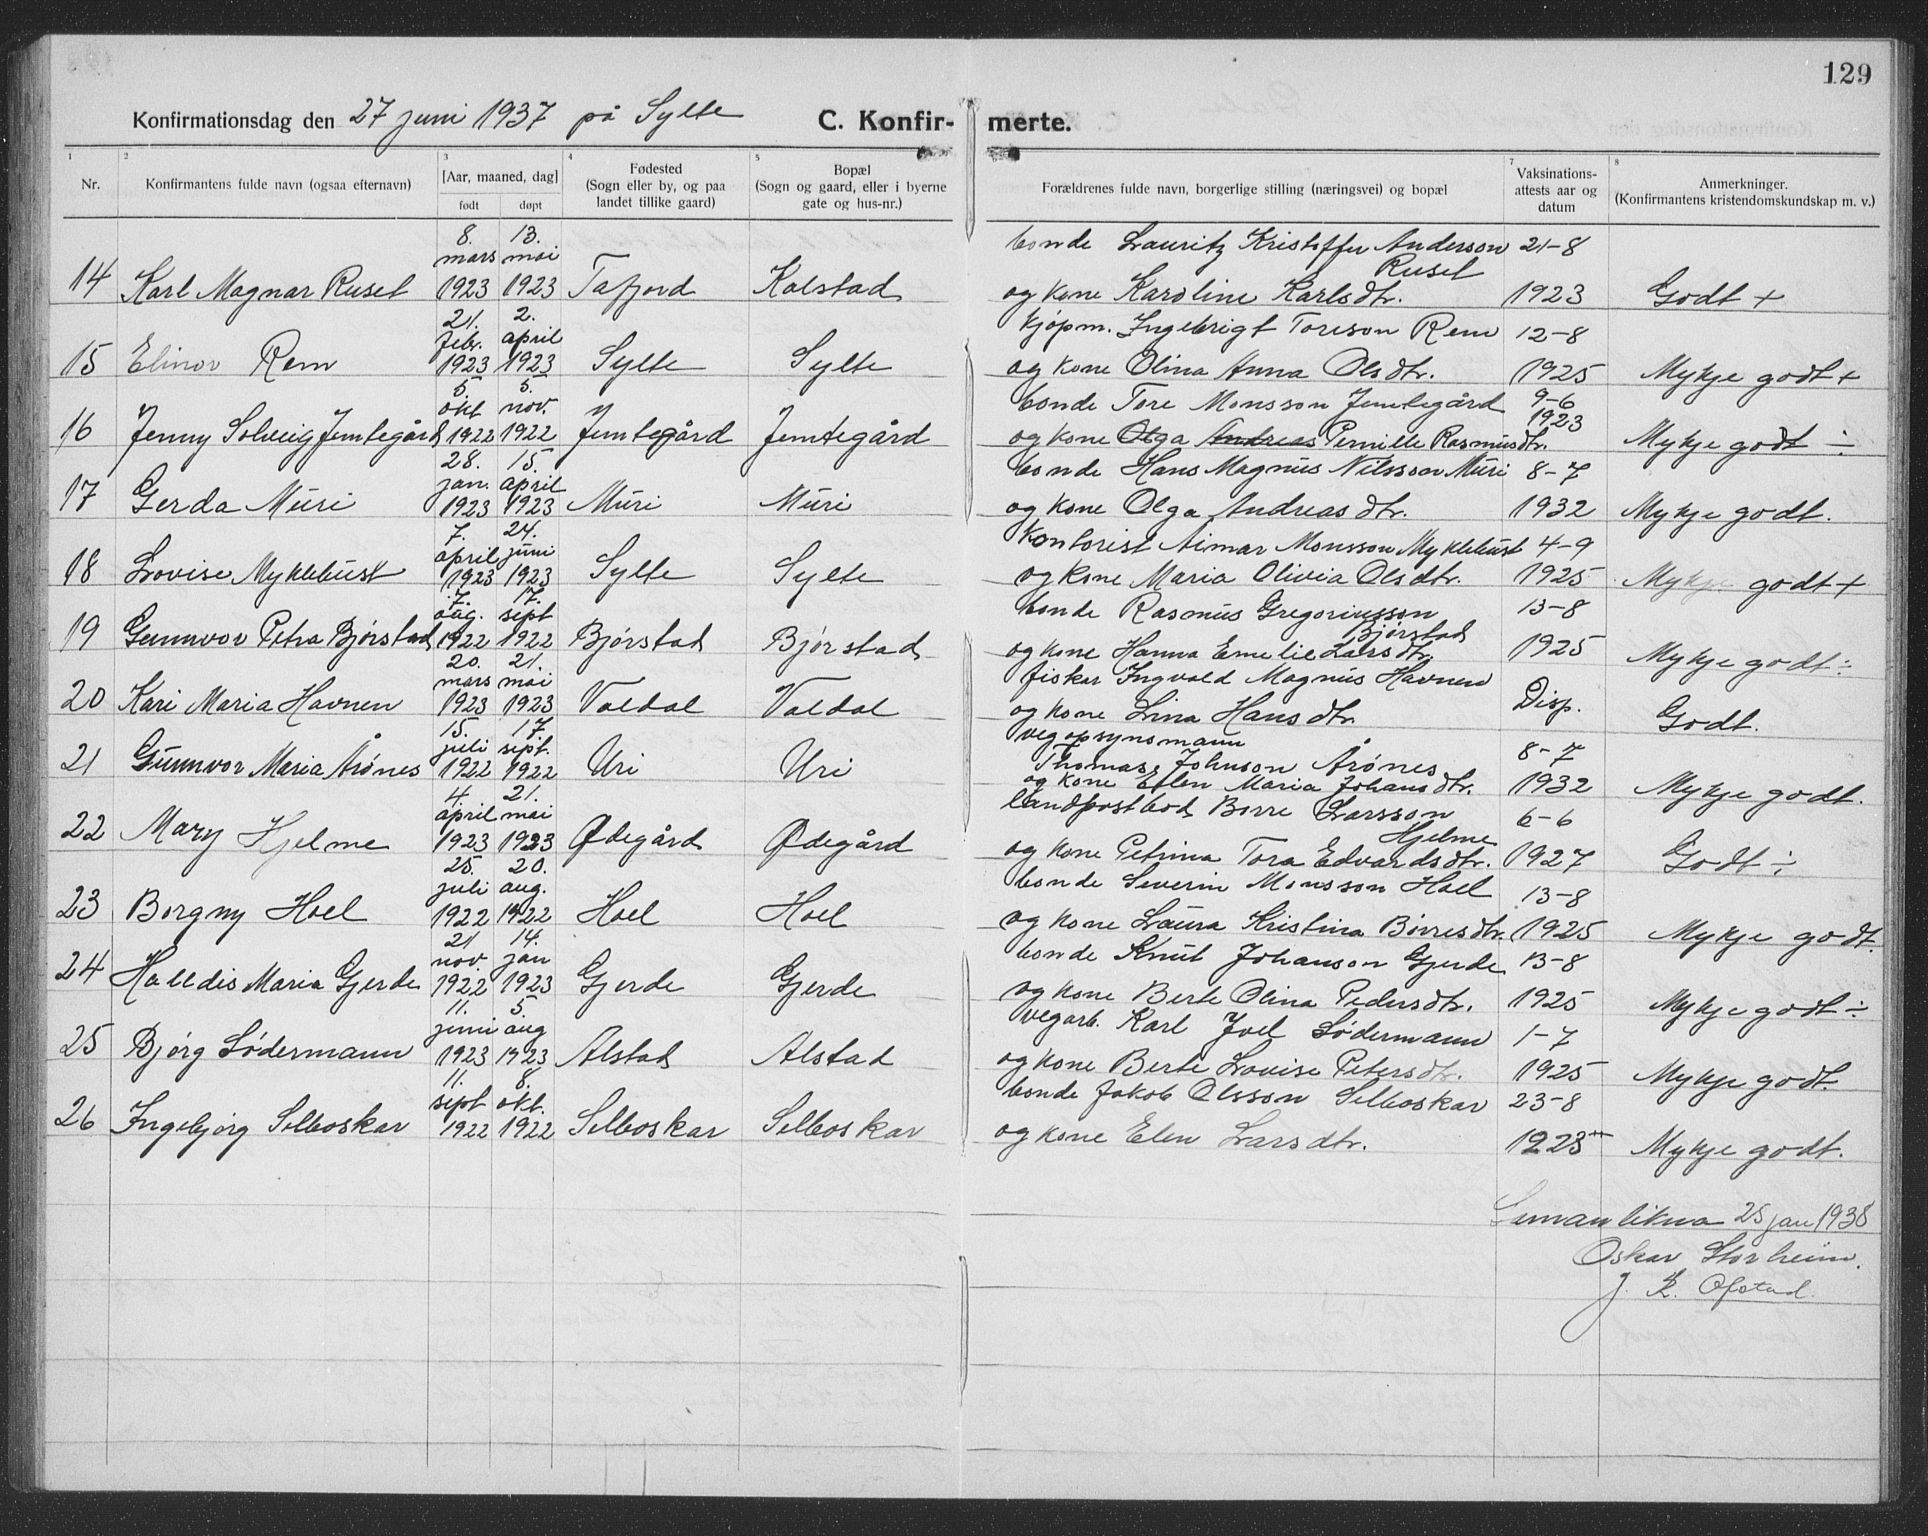 129
Konfirmationsdag den 27 juni 1937 på Sylte C. Konfir- merte.
1 2 3 4 5 7 8
Nr. Konfirmantens fulde navn (ogsaa efternavn) [Aar, maaned, dag] født døpt Fødested (Sogn eller by, og paa landet tillike gaard) Bopæl (Sogn og gaard, eller i byerne gate og hus-nr.) Forældrenes fulde navn, borgerlige stilling (næringsvei) og bopæl Vaksinations-attests aar og datum Anmerkninger. (Konfirmantens kristendomskundskap m. v.)
8. 13. bonde Lauritz Kristoffer Anderson 21-8
mars mai Ruset
14 Karl Magnar Ruset 1923 1923 Tafjord Kolstad og kone Karoline Karlsdtr. 1923 Godt +
21. 2. kjøpm. Ingebrigt Toreson Rem 12-8
febr. april
15 Elinor Rem 1923 1923 Sylte Sylte og kone Olina Anna Olsdtr. 1925 Mykje godt +
5. 5. bonde Tore Monsson Jemtegård 9-6
okt nov. 1923
16 Jenny Solveig Jemtegård 1922 1922 Jemtegård Jemtegård og kone Olga Andreas Pernille Rasmusdtr. Mykje godt ÷
28. 15. bonde Hans Magnus Nilsson Muri 8-7
jan. april
17 Gerda Muri 1923 1923 Muri Muri og kone Olga Andreasdtr. 1932 Mykje godt.
7. 24. Kontorist Aimar Monsson Myklebust 4-9
april juni
18 Lovise Myklebust 1923 1923 Sylte Sylte og kone Maria Olivia Olsdtr. 1925 Mykje godt +
7. 17. bonde Rasmus Gregoriusson 13-8
aug. sept Bjørstad
19 Gunnvor Petra Bjørstad 1922 1922 Bjørstad Bjørstad og kone Hanna Emelie Larsdtr. 1925 Mykje godt ÷
20. 21. fiskar Ingvald Magnus Havnen
mars mai Disp.
20 Kari Maria Havnen 1923 1923 Valdal Valdal og kone Lina Hansdtr. Godt.
15. 17. vegopsynsmann 8-7
juli sept. Thomas Johnson Årønes
21 Gunnvor Maria Årønes 1922 1922 Uri Uri og kone Elen Maria Johansdtr. 1932 Mykje godt.
4. 21. landpostbod Børre Larsson 6-6
april mai Hjelme
22 Mary Hjelme 1923 1923 Ødegård Ødegård og kone Petrina Tora Edvardsdtr. 1927 Godt ÷
25. 20. bonde Severin Monsson Hoel 13-8
juli aug.
23 Borgny Hoel 1922 1922 Hoel Hoel og kone Laura Kristina Børresdtr. 1925 Mykje godt.
21 14. bonde Knut Johanson Gjerde 13-8
nov. jan
24 Halldis Maria Gjerde 1922 1923 Gjerde Gjerde og kone Berte Olina Pedersdtr. 1925 Mykje godt ÷
11. 5. vegarb. Karl Joel Sødermann 1-7
juni aug
25 Bjørg Sødermann 1923 1923 Alstad Alstad og kone Berte Lovise Petersdtr. 1925 Mykje godt.
11. 8. bonde Jakob Olsson Selboskar 23-8
sept okt.
26 Ingebjørg Selboskar 1922 1922 Selboskar Selboskar og kone Elen Larsdtr. 1923 Mykje godt.
Samanlikna 25 jan 1938
Oskar Storheim.
J. K. Ofstad.